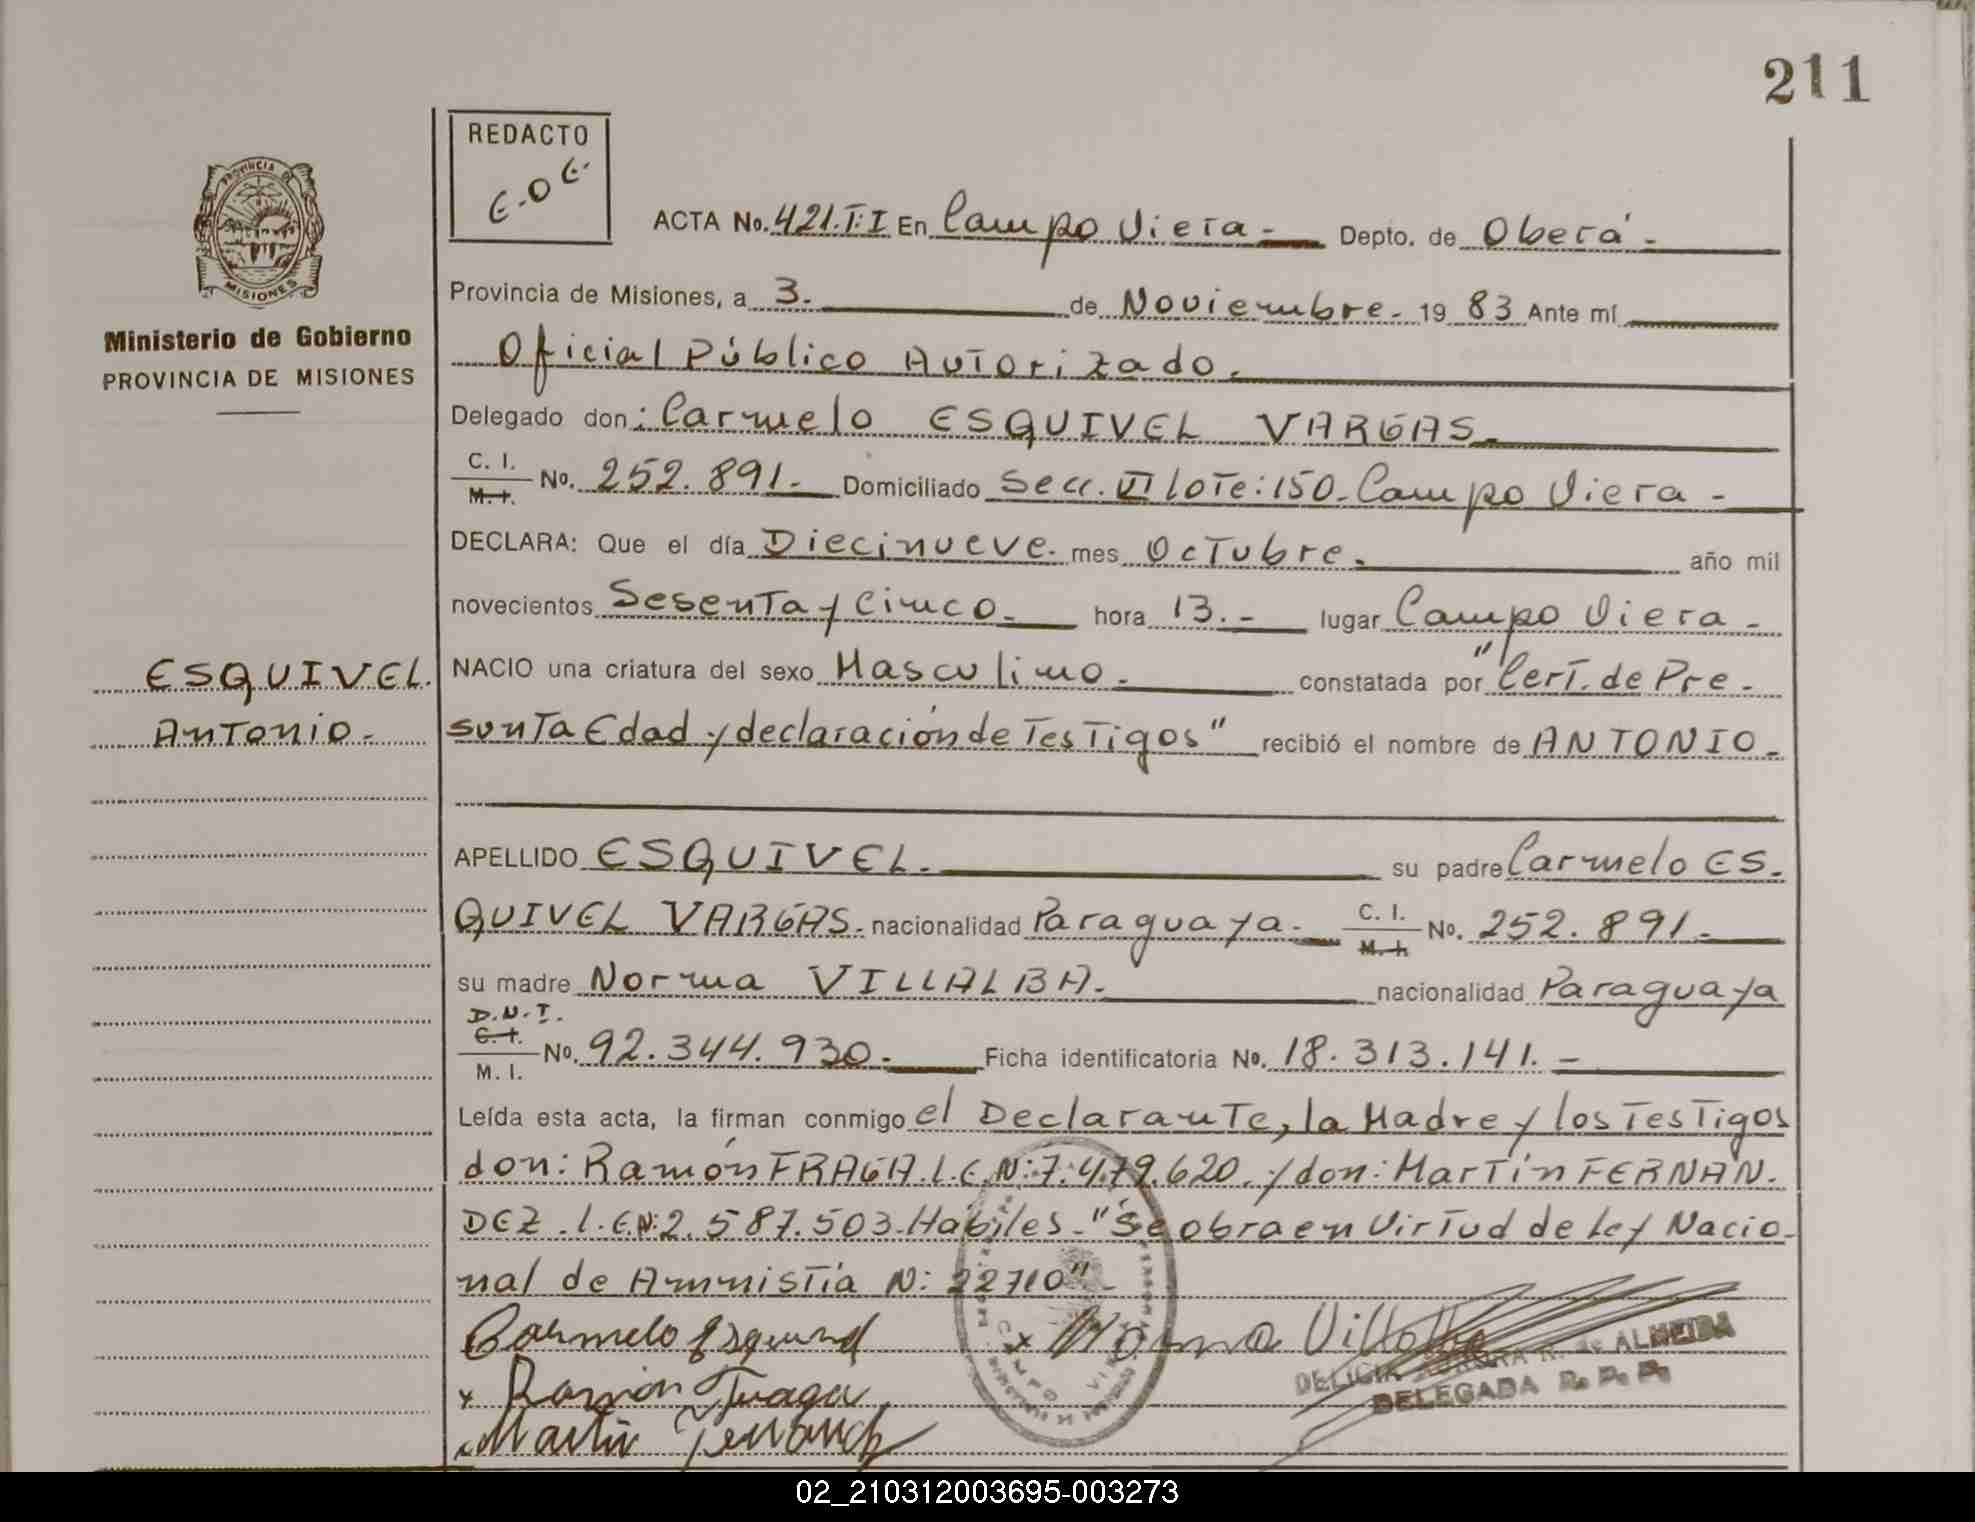 211
REDACTO
E.O.E.
PROVINCIA DE
MISIONES
Ministerio de Gobierno
PROVINCIA DE MISIONES
ESQUIVEL.
Antonio.-
ACTA No. 421.T:I En Campo Viera.- Depto. de Oberá.-
Provincia de Misiones, a 3. de Noviembre.- 19 83 Ante mí
Oficial Público Autorizado.
Delegado don: Carmelo ESQUIVEL VARGAS.
C. I.
M. I. No. 252.891.- Domiciliado Secc. VI lote: 150. Campo Viera.-
DECLARA: Que el día Diecinueve. mes Octubre. año mil
novecientos Sesenta y Cinco.- hora 13.- lugar Campo Viera.-
NACIO una criatura del sexo Masculino.- constatada por "Cert. de Pre-
sunta Edad y declaración de Testigos" recibió el nombre de ANTONIO.-
APELLIDO ESQUIVEL. su padre Carmelo ES-
QUIVEL VARGAS. nacionalidad Paraguaya.- C. I.
M. I. No. 252.891.-
su madre Norma VILLALBA. nacionalidad Paraguaya
D.N.I.
C. I.
M. I. No. 92.344.930.- Ficha identificatoria No. 18.313.141.-
Leída esta acta, la firman conmigo el Declarante, la Madre y los Testigos
don: Ramón FRAGA. L.E.N: 7.479.620. y don: Martín FERNAN-
DEZ. L.E.N: 2.587.503. Hábiles.- "Se obra en Virtud de Ley Nacio-
nal de Amnistía N: 22710"-
Carmelo Esquivel x Norma Villalba
DELICIA R. de ALMEIDA
DELEGADA R. P. P.
x Ramón Fraga
Martin Fernandez
CAMPO VIERA
02_210312003695-003273